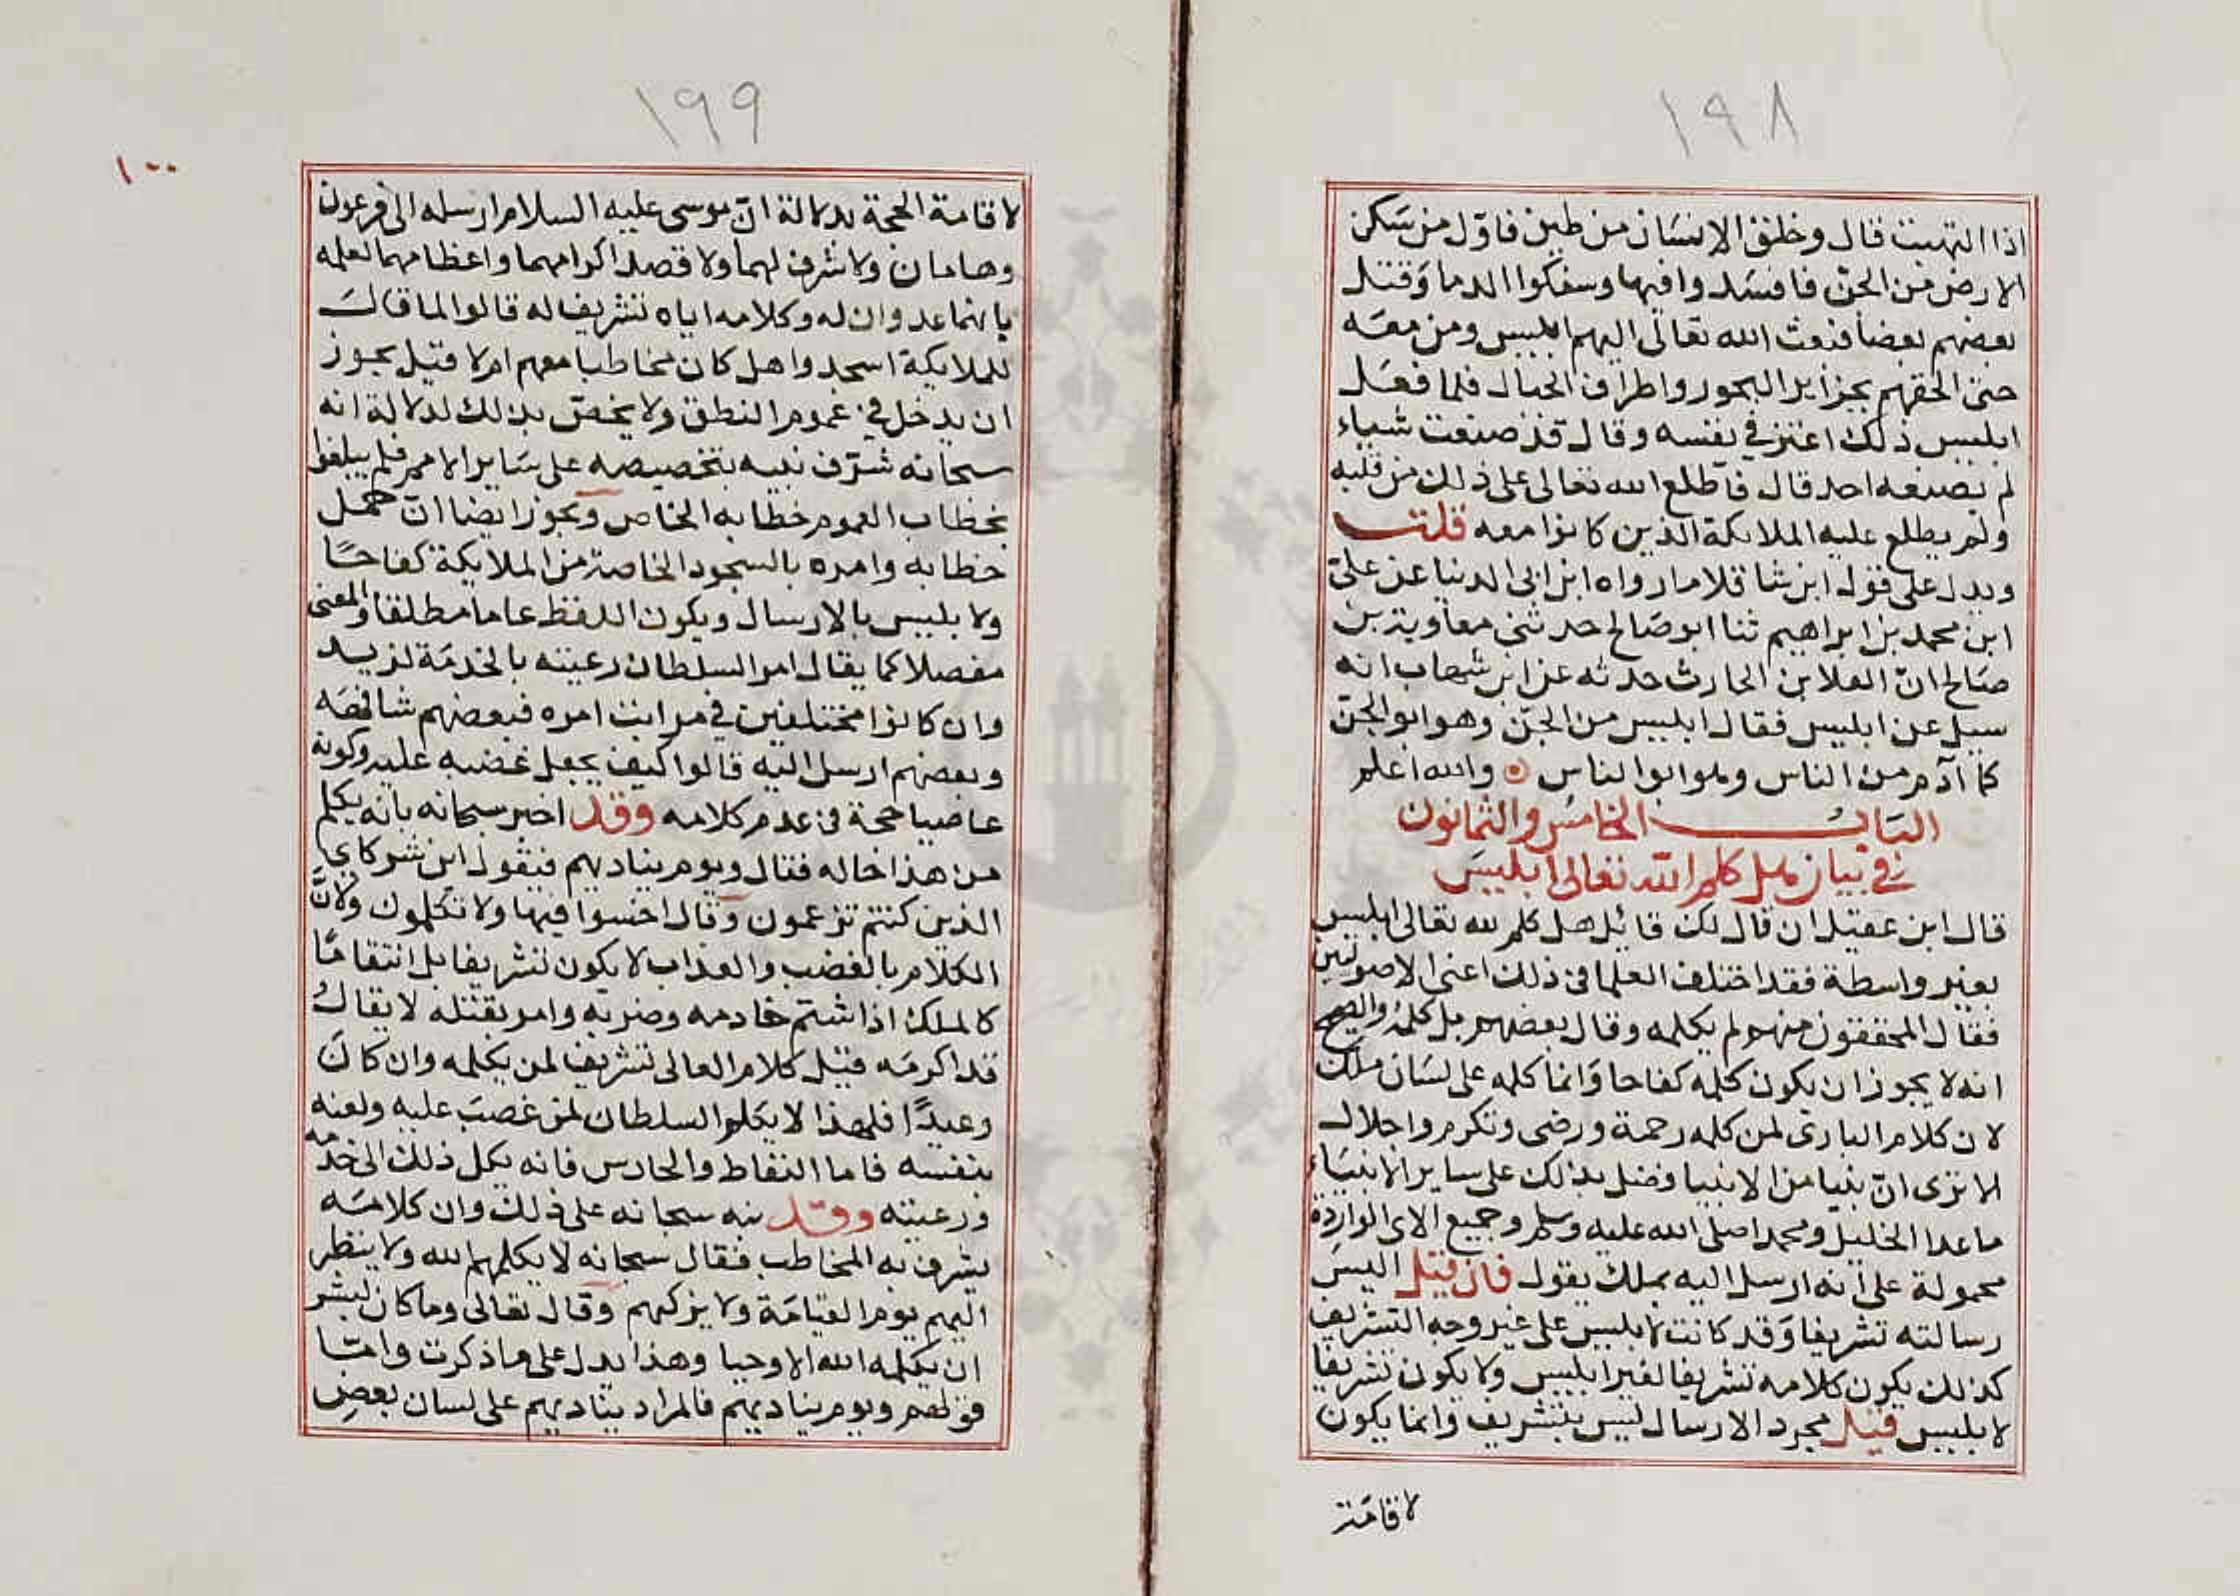 ١٩٨
اذا التهبت قال وخلق الانسان من طين فاوّل من سكن
الارض من الجن فافسدوا فيها وسفكوا الدما وقتل
بعضهم بعضا فبعث الله تعالى اليهم ابليس ومن معه
حتى الحقهم بجزاير البحور واطراف الجبال فلما فعل
ابليس ذلك اغتر في نفسه وقال قد صنعت شياء
لم يصنعه احد قال فاطلع الله تعالى على ذلك من قلبه
ولم يطلع عليه الملايكة الذين كانوا معه قلت
ويدل على قول ابن شاقلا ما رواه ابن ابى الدنيا عن علىّ
ابن محمد بن ابراهيم ثنا ابو صالح حدثني معاوية بن
صالح انّ العلا بن الحارث حدثه عن ابن شهاب انه
سيل عن ابليس فقال ابليس من الجنّ وهو ابو الجنّ
كما آدم من الناس وهو ابو الناس ۞ والله اعلم
الباب الخامس والثمانون
في بيان هل كلم الله تعالى ابليس
قال ابن عقيل ان قال لك قائيل هل كلم الله تعالى ابليس
بغير واسطة فقد اختلف العلما في ذلك اعنى الاصوليين
فقال المحققون منهم لم يكلمه وقال بعضهم بل كلمه والصحيح
انه لا يجوز ان يكون كلمه كفاحا وانما كلمه على لسان ملك
لان كلام البارى لمن كلمه رحمة ورضى وتكرم واجلال
الا ترى انّ نبيا من الانبيا فضل بذلك على ساير الانبياء
ما عدا الخليل ومحمد اصلى الله عليه وسلم وجميع الاى الواردة
محمولة على انه ارسل اليه بملك يقول فان قيل اليس
رسالته تشريفا وقد كانت لابليس على غير وجه التشريف
كذلك يكون كلامه تشريفا لغير ابليس ولا يكون تشريفا
لابليس قيل مجرد الارسال ليس بتشريف وانما يكون
لاقامة
١٩٩
١٠٠
لاقامة الحجة بدلالة انّ موسى عليه السلام ارسله الى فرعون
وهامان ولا شرف لهما ولا قصد اكرامهما واعظامهما لعلمه
بانهما عدوان له وكلامه اياه تشريف له قالوا لما قال
للملايكة اسجدوا هل كان مخاطبا معهم ام لا قيل يجوز
ان يدخل في عموم النطق ولا يخصّ بذلك لدلالة انه
سبحانه شرّف نبيه بتخصيصه على ساير الامم فلم يبلغوا
بخطاب العموم خطابه الخاص ويجوز ايضا انّ حمل
خطابه وامره بالسجود الخاصة من الملايكة كفاحًا
ولابليس بالارسال ويكون اللفظ عاما مطلقا والمعنى
مفصلا كما يقال امر السلطان رعيته بالخدمة لزيد
وان كانوا مختلفين في مراتب امره فبعضهم شافهه
وبعضهم ارسل اليه قالوا كيف يجعل غضبه عليه وكونه
عاصيا حجة في عدم كلامه وقد اخبر سبحانه بانه يكلم
من هذا حاله فقال ويوم يناديهم فيقول اين شركاي
الذين كنتم تزعمون وقال اخسوا فيها ولا تكلمون ولانّ
الكلام بالغضب والعذاب لا يكون تشريفا بل انتقامًا
كالملك اذا شتم خادمه وضربه وامر بقتله لا يقال
قد اكرمه قيل كلام العالى تشريف لمن يكلمه وان كان
وعيدًا فلهذا لا يكلم السلطان لمن غضب عليه ولعنه
بنفسه فاما النفاط والحارس فانه يكل ذلك الى خدمه
ورعيته وقد نبه سبحانه على ذلك وان كلامه
يشرف به المخاطب فقال سبحانه لا يكلمهم الله ولا ينظر
اليهم يوم القيامة ولا يزكيهم وقال تعالى وما كان لبشر
ان يكلمه الله الا وحيا وهذا يدل على ما ذكرت وامّا
قولهم ويوم يناديهم فالمراد يناديهم على لسان بعض